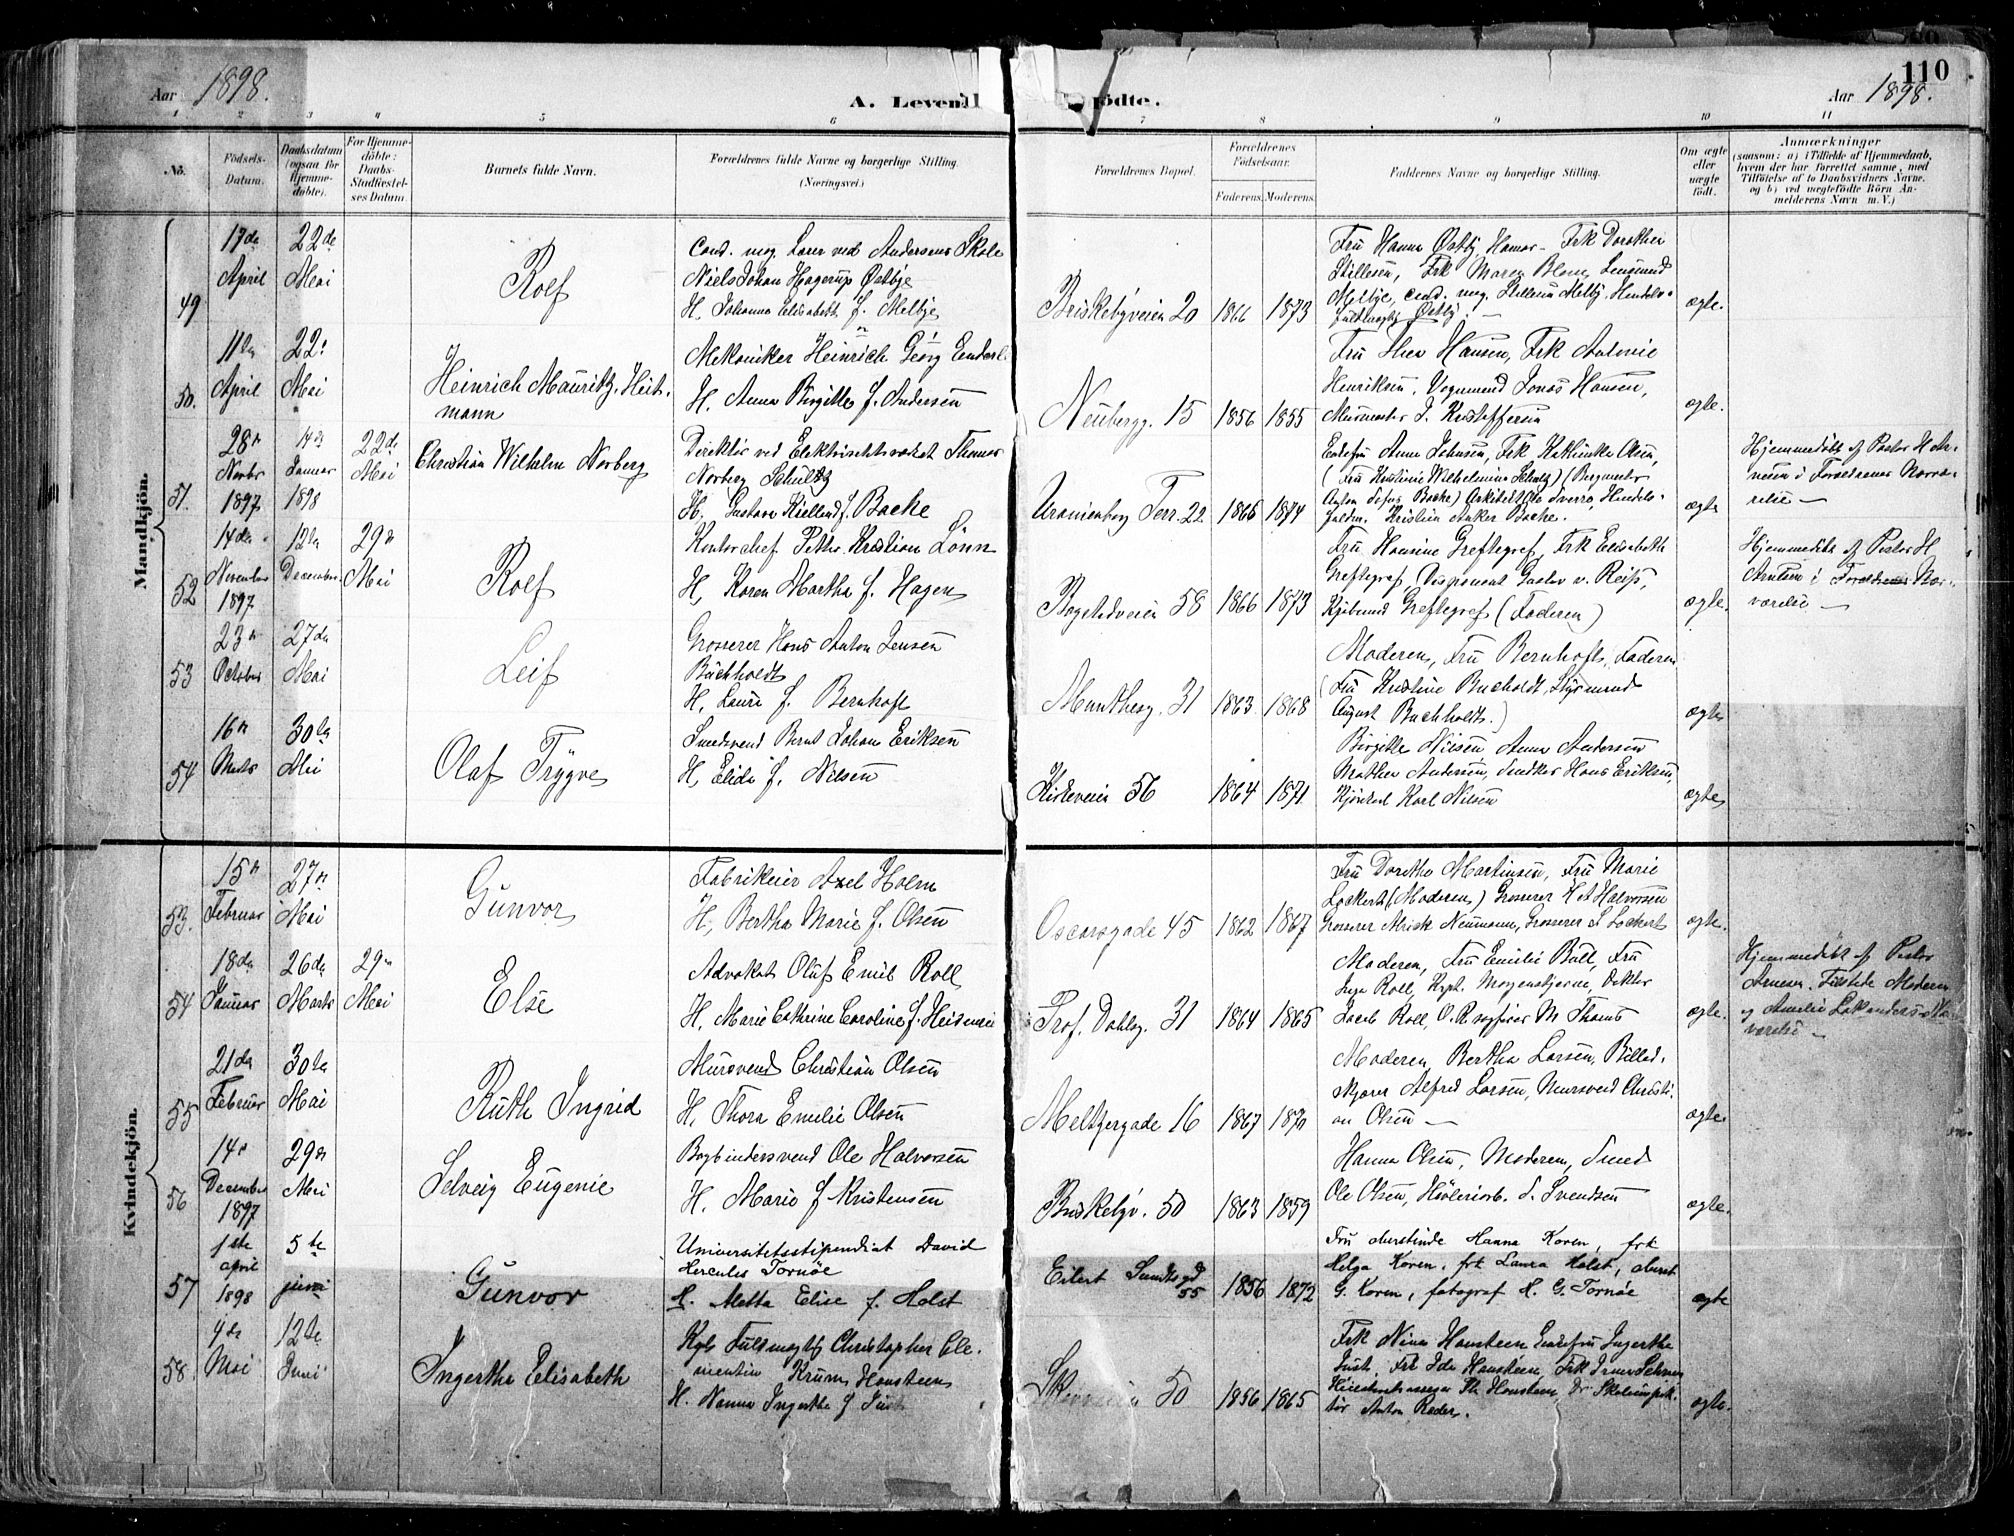 110
Aar 1898.
A. Levende födte.
Aar 1898.
1 2 3 4 5 6 7 8 9 10 11
No.
Födsels-Datum.
Daabsdatum (ogsaa for Hjemme-döbte).
For Hjemme-döbte: Daabs-Stadfæstel-ses Datum.
Barnets fulde Navn.
Forældrenes fulde Navne og borgerlige Stilling.
(Næringsvei.)
Forældrenes Bopæl.
Forældrenes Födselsaar.
Faderens. Moderens.
Faddernes Navne og borgerlige Stilling.
Om ægte eller uægte födt.
Anmærkninger
(saasom: a) i Tilfælde af Hjemmedaab,
hvem der har forrettet samme, med
Tilföielse af to Daabsvidners Navne.
og b) ved uægtefödte Börn An-
melderens Navn m. V.)
Mandkjön.
49
17de April
22de Mai
Rolf
cand. mag. Lærer ved Andersens Skole
Niels Johan Hagerup Østbye
H. Johanna Elisabeth f. Melbye
Briskebyveien 20
1866 1873
Fru Hanna Østby Hamar - Frk Dorothea
Stillesen, Frk Maren Blom,
Melbye, cand. mag. Melby, Handels-
fuldmægtig Østby. —
ægte.
50.
11te April
22. Mai
Heinrich Mauritz Heit-
mann
Mekaniker Heinrich Georg
H. Anna Birgitte f. Andersen
Neubergg. 15
1856 1855
Fru Thea Hansen, Frk Antonie
Henriksen, Vognmand Jonas Hansen,
Murmester J. Kristoffersen
ægte.
51.
28n Novbr 1897
14de Januar 1898
22de Mai
Christian Wilhelm Norberg
Direktör ved Elektricitetsverket Thomas
Norberg Schultz
H. Gustava Kielland f. Backe
Uranienborg Terr. 22
1866 1874
Enkefru Anna Johnsen, Frk Kathinka Olsen,
(Fru Kristine Wilhelmine Schultz) (Bergmester
Anton Backe) Arkitekt Ole Sverre, Handels-
fuldm. Kristian Anker Backe.
ægte
Hjemmedöbt af Pastor H Ar-
nesen i Forældrenes Nærvæ-
relse —
52
14de November 1897
12te December
29n Mai
Rolf
Kontorchef Peter Kristian Lönn
H, Karen Martha f. Hagen
Bogstadveien 58
1866 1873
Fru Hansine Greftegref, Frk Elisabeth
Greftegref, Disponent Gustav v. Reiss,
Kjöbmand Greftegref (Faderen)
ægte.
Hjemmedöbt af Pastor H
Arnesen i Forældrenes Nær-
værelse —
53
23n October
27de Mai
Leif
Grosserer Hans Anton Jensen
Buchholdt
H, Laura f. Bernhoft
Munthesg. 31
1863 1868
Moderen, Fru Bernhoft, Faderen
(Fru Kristine Bucholdt, Styrmand
August Buchholdt.)
ægte
54
16n Marts
30te Mai
Olaf Trygve
Smedsvend Bernt Johan Eriksen
H, Elida f. Nilsen
Kirkeveien 56
1864 1871
Birgitte Nilsen Anna Andersen
Mathea Andersen, Snedker Hans Eriksen,
Karl Nilsen
ægte
Kvindekjön.
53.
15n Februar
27n Mai
Gunvor
Fabrikeier Axel Holm
H, Bertha Marie f. Olsen
Oscarsgade 45
1862 1867
Fru Dorthe Martinsen, Fru Marie
Lockert (Moderen) Grosserer H A Halvorsen
Grosserer Alrick Neumann, Grosserer S Lockert
ægte.
54
18de Januar
26de Marts
29n Mai
Else
Advokat Oluf Emil Roll
H, Marie Cathrine Caroline f.
Prof. Dahlsg. 31
1864 1865
Moderen, Fru Emilie Roll, Fru
Inga Roll, Kapt. Morgenstjerne, Doktor
Jacob Roll, O.R sagförer M Thams
ægte.
Hjemmedöbt af Pastor
Arnesen. Tilstede Moderen
og Amelie
værelse —
55
21de Februar
30te Mai
Ruth Ingrid
Mursvend Christian Olsen
H, Thora Emilie Olsen
Meltzergade 16
1867 1870
Moderen, Bertha Larsen, Billed-
skjærer Alfred Larsen, Mursvend Christi-
an Olsen —
ægte.
56
14n December 1897
29n Mai
Solveig Eugenie
Bogbindersvend Ole Halvorsen
H. Marie f Kristensen
Briskebyv. 50
1863 1859
Hanna Olsen, Moderen, Smed
Ole Olsen, Höleriarb. S. Svendsen
ægte.
57
1ste april 1898
5te juni
Gunvor
Universitetsstipendiat David
Hercules Tornöe
H. Metta Elise f. Holst
Eilert Sundtsgd 55
1856 1872
Fru Hanna Koren, frk
Helga Koren, frk Laura Holst,
G. Koren, fotograf H. G. Tornöe
ægte
58.
4de Mai
12te Juni
Ingertha Elisabeth
Kgls Fuldmægtig Christopher Cle-
mentin Krum Hansteen
H. Nanna Ingertha f Just
50
1856 1865
Frk Nina Hansteen Enkefru Ingertha
Just, Frk Ida Hansteen, Frk
Höiesteretsassessor Hansteen, Dr Skoleinspek-
tör Anton Ræder.
ægte.